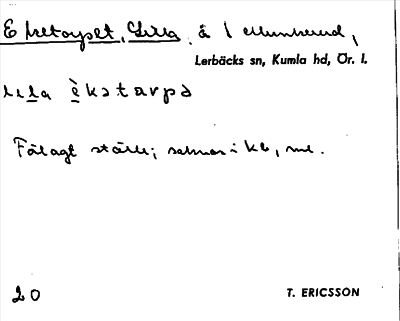 Eketorpet, Lilla, å l
Lerbäcks sn, Kumla hd, Ör. l.
lila èkstarpə
Fölagt ställe; saknas i kb, ml.
20
T. ERICSSON